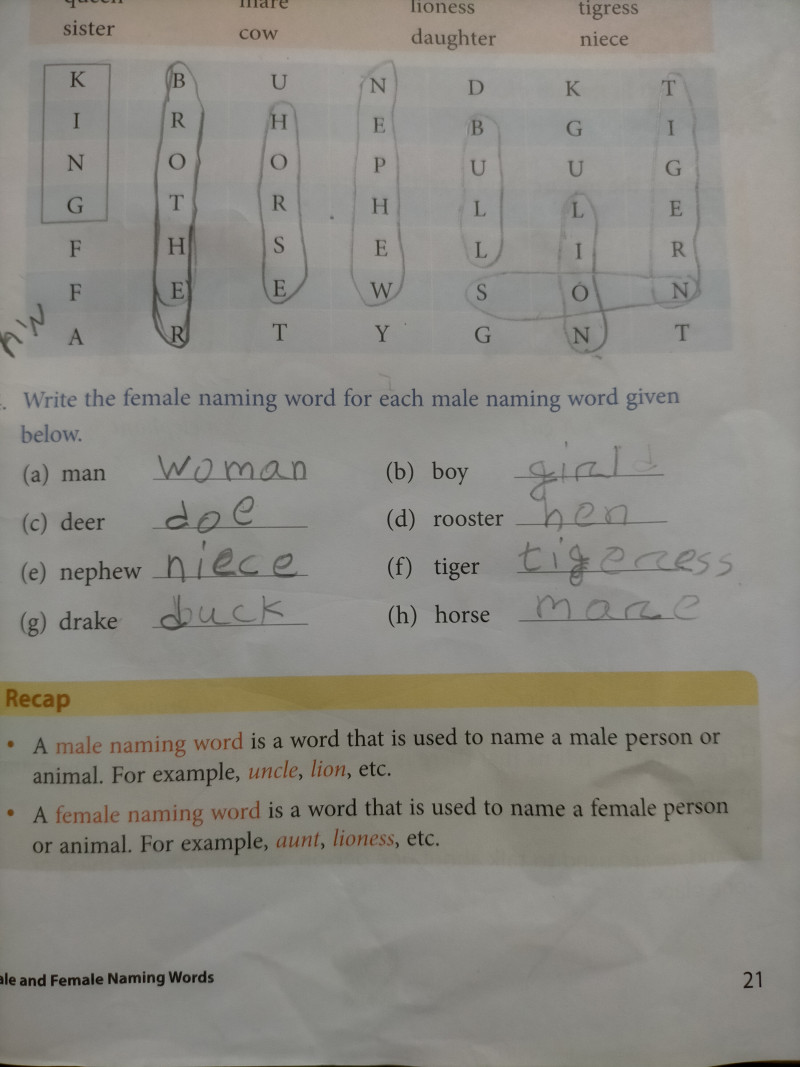 queen mare lioness tigress
sister cow daughter niece
K B U N D K T
I R H E B G I
N O O P U U G
G T R H L L E
F H S E L I R
F E E W S O N
A R T Y G N T
Write the female naming word for each male naming word given
below.
(a) man woman (b) boy girl
(c) deer doe (d) rooster hen
(e) nephew niece (f) tiger tigeress
(g) drake duck (h) horse mare
Recap
• A male naming word is a word that is used to name a male person or
animal. For example, uncle, lion, etc.
• A female naming word is a word that is used to name a female person
or animal. For example, aunt, lioness, etc.
ale and Female Naming Words 21